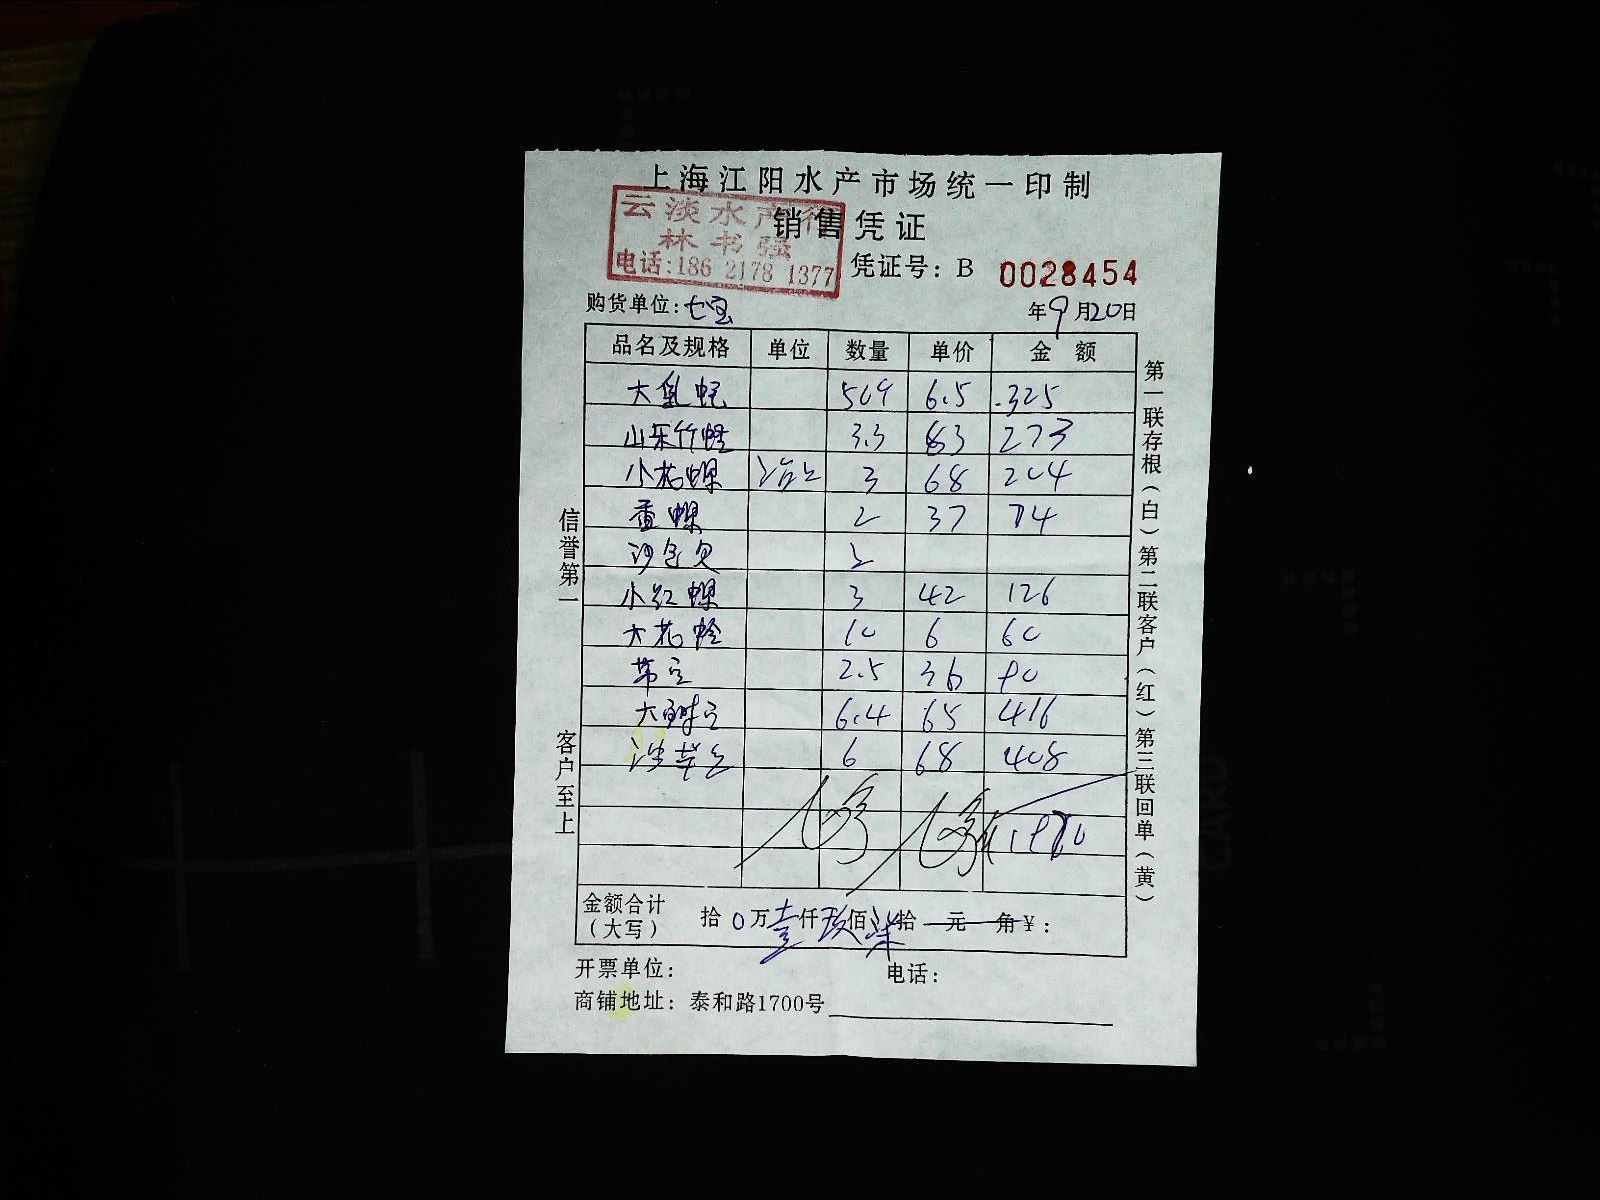 上海江阳水产市场统一印制
销售凭证
云淡水产行
林书强
电话:186 2178 1377
凭证号：B 0028454
购货单位:七宝
年9月20日
品名及规格 单位 数量 单价 金额
6.5 325
山东竹蛏 3.3 83 273
小花螺 3 68 204
香螺 2 37 74
2
小红螺 3 42 126
大花蛤 10 6 60
2.5 36 90
6.4 65 416
6 68 408
金额合计
（大写）
拾0万壹仟玖佰柒拾元角¥：
开票单位：
电话：
商铺地址：泰和路1700号
信誉第一
客户至上
第一联存根（白）第二联客户（红）第三联回单（黄）